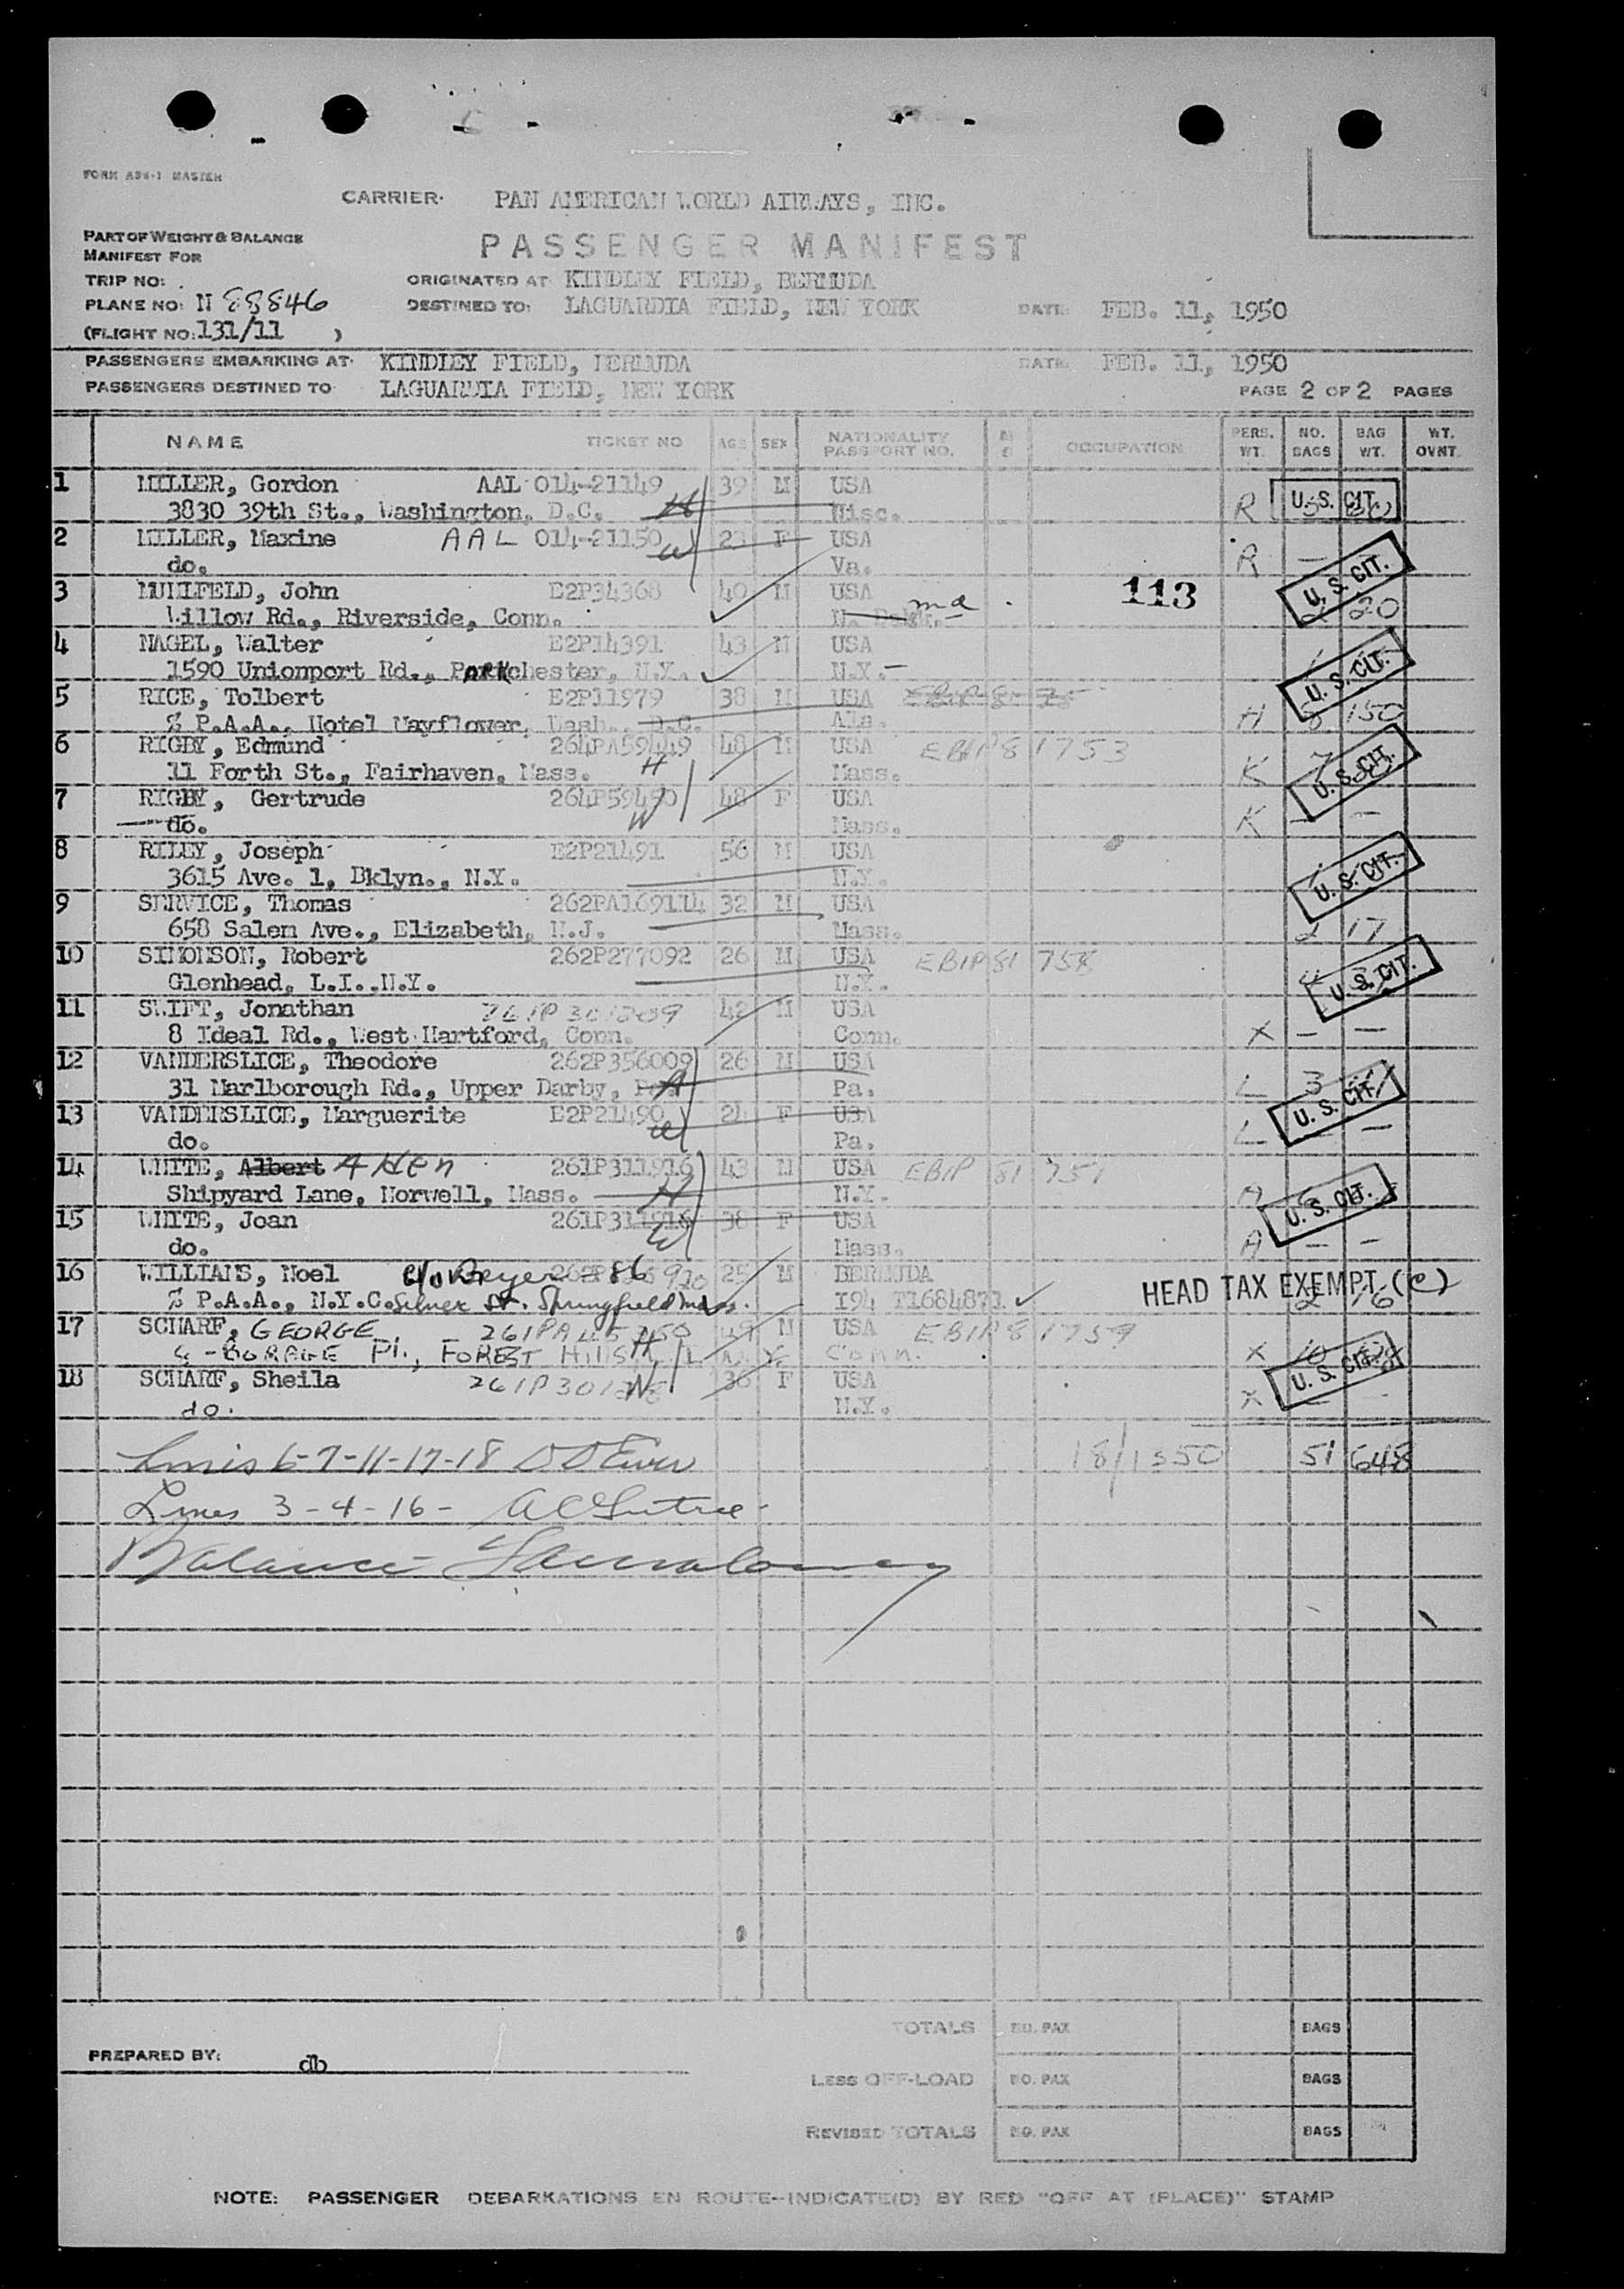 FORM ADM-1 MASTER
CARRIER· PAN AMERICAN WORLD AIRWAYS, INC.
PART OF WEIGHT & BALANCE
MANIFEST FOR
PASSENGER MANIFEST
TRIP NO: ORIGINATED AT KINDLEY FIELD, BERMUDA
PLANE NO: N 88846 DESTINED TO: LAGUARDIA FIELD, NEW YORK DATE: FEB. 11, 1950
(FLIGHT NO: 131/11 )
PASSENGERS EMBARKING AT· KINDLEY FIELD, BERMUDA DATE: FEB. 11, 1950
PASSENGERS DESTINED TO LAGUARDIA FIELD, NEW YORK PAGE 2 OF 2 PAGES
NAME TICKET NO AGE SEX NATIONALITY PASSPORT NO. OCCUPATION PERS. WT. NO. BAGS BAG WT. WT. OVNT.
1 MILLER, Gordon AAL 014-21149 39 M USA U.S. CIT.
3830 39th St., Washington, D.C. H Wisc. R
2 MILLER, Maxine AAL 014-21150 23 F USA
do. W Va. R — U. S. CIT.
3 MUHLFELD, John E2P34368 40 M USA 113
Willow Rd., Riverside, Conn. N. Dak. md 20
4 NAGEL, Walter E2P14391 43 M USA
1590 Unionport Rd., Parkchester, N.Y. N.Y. U. S. CIT.
5 RICE, Tolbert E2P11979 38 M USA
% P.A.A., Hotel Mayflower, Wash., D.C. Ala. H 8 150
6 RIGBY, Edmund 264PA59449 48 M USA EBIP81753
11 Forth St., Fairhaven, Mass. H Mass. K 7 U. S. CIT.
7 RIGBY, Gertrude 264P59450 48 F USA
do. W Mass. K — —
8 RILEY, Joseph E2P21491 56 M USA
3615 Ave. 1, Bklyn., N.Y. N.Y. U. S. CIT.
9 SERVICE, Thomas 262PA169114 32 M USA
658 Salem Ave., Elizabeth, N.J. Mass. 2 17
10 SIMONSON, Robert 262P277092 26 M USA EBIP81758
Glenhead, L.I., N.Y. N.Y. U. S. CIT.
11 SWIFT, Jonathan 261P301209 42 M USA
8 Ideal Rd., West Hartford, Conn. Conn. X — —
12 VANDERSLICE, Theodore 262P356009 26 M USA
31 Marlborough Rd., Upper Darby, Pa. H Pa. L 3
13 VANDERSLICE, Marguerite E2P21490 24 F USA U. S. CIT.
do. W Pa. L — —
14 WHITE, Albert Allen 261P311916 43 M USA EBIP 81757
Shipyard Lane, Norwell, Mass. H N.Y. A
15 WHITE, Joan 261P311916 38 F USA U. S. CIT.
do. W Mass. A — —
16 WILLIAMS, Noel c/o Beyer - 86 25 M BERMUDA HEAD TAX EXEMPT (C)
% P.A.A., N.Y.C. Silver St. Springfield Mass. I94 T1684871 ✓ 2 76
17 SCHARF, GEORGE 49 M USA EBIP81759
BORAGE Pl., FOREST Hills H L.I. N.Y. Conn. X 10
18 SCHARF, Sheila W 36 F USA U. S. CIT.
do. N.Y. X — —
Lines 6-7-11-17-18 18/1350 51 648
Lines 3-4-16-
Balance
TOTALS NO. PAX BAGS
PREPARED BY: db
LESS OFF-LOAD NO. PAX BAGS
REVISED TOTALS NO. PAX BAGS
NOTE: PASSENGER DEBARKATIONS EN ROUTE—INDICATE(D) BY RED "OFF AT (PLACE)" STAMP